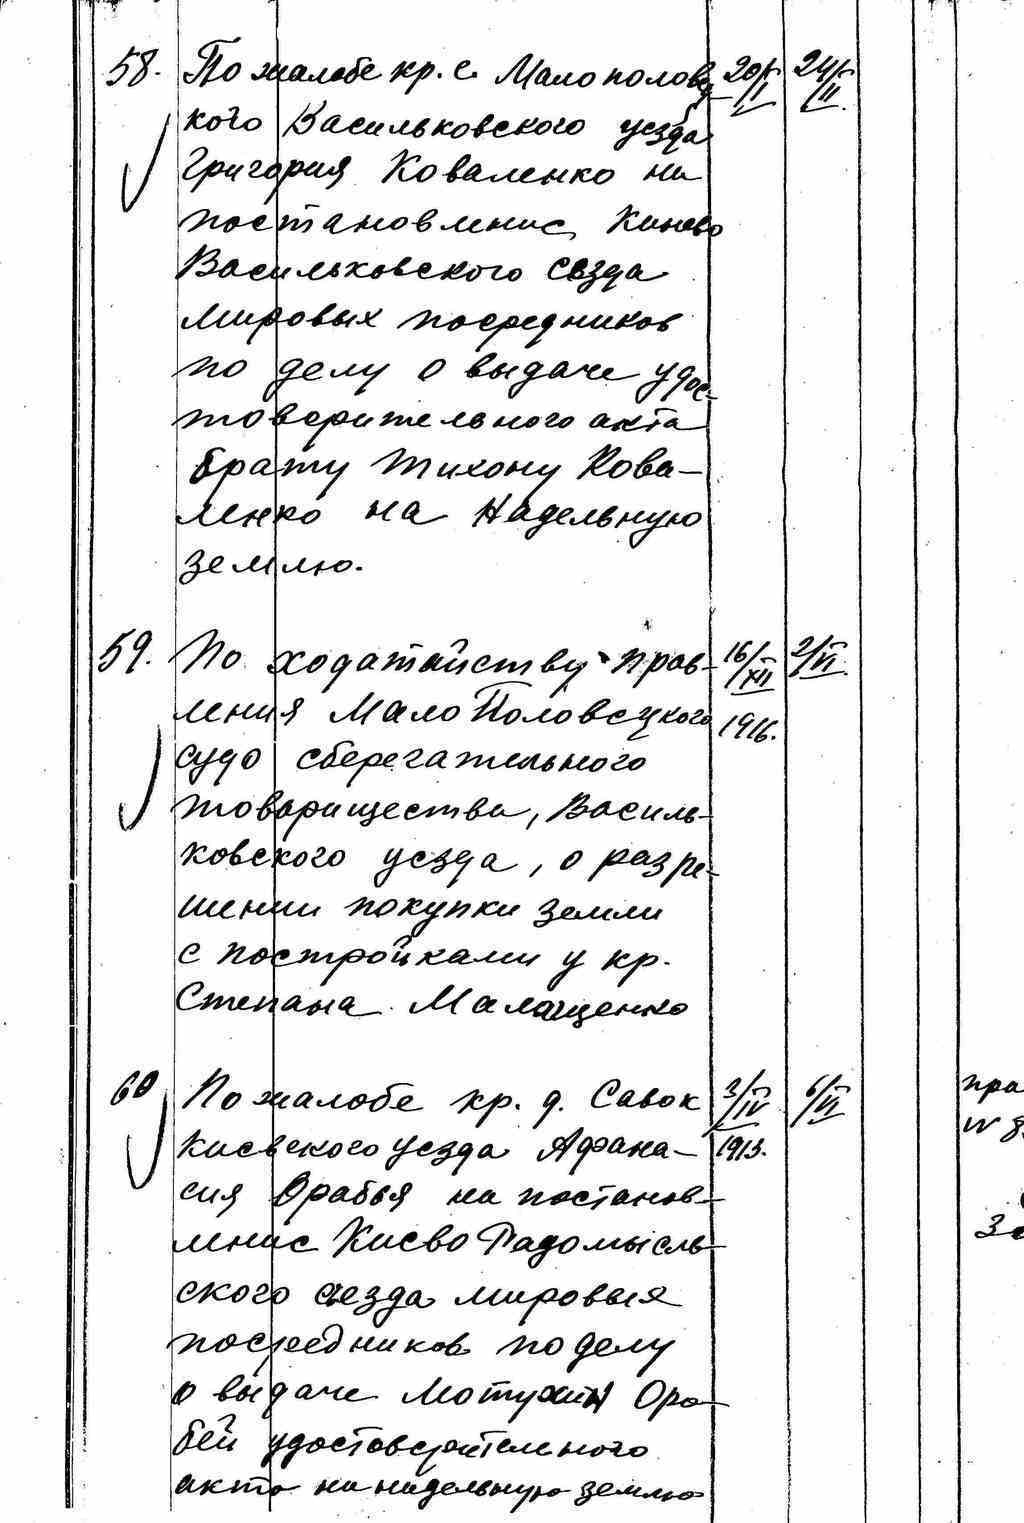 58. По жалобе кр. с. Малополовец- 20/II 24/II
кого Васильковского уезда
Григория Коваленко на
постановление Киево
Васильковского сезда
мировых посредников
по делу о выдаче удос-
товерительного акта
брату Тихону Кова-
ленко на надельную
землю.
59. По ходатайству прав- 16/XII 2/VI
ления МалоПоловецкого 1916.
судо сберегательного
товарищества, Василь-
ковского уезда, о разре-
шении покупки земли
с постройками у кр.
Степана
60 По жалобе кр. д. Савок 3/IV 6/VI
Киевского уезда Афана- 1913.
сия Орабья на постанов-
ление Киево Радомысль-
ского сьезда мировыя
посредников по делу
о выдаче Ора-
бей удостоверительного
акта на надельную землю
пра